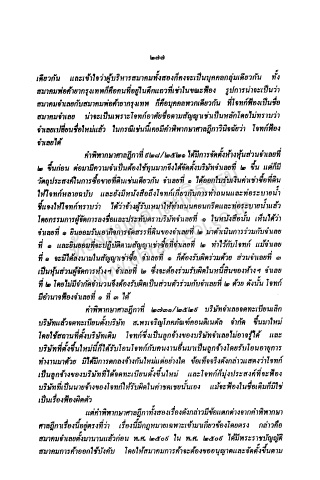 ๒๗๗
เดียวกัน และเข้าใจว่าผู้บริหารสมาคมทั้งสองก็คงจะเป็นบุคคลกลุ่มเดียวกัน ทั้ง
สมาคมพ่อค้ายากรุงเทพก็คือคนที่อยู่ในตึกแถวที่เช่าในขณะฟ้อง รูปการน่าจะเป็นว่า
สมาคมจำเลยกับสมาคมพ่อค้ายากรุงเทพ ก็คือบุคคลพวกเดียวกัน ที่โจทก์ฟ้องเป็นชื่อ
สมาคมจำเลย น่าจะเป็นเพราะโจทก์อาศัยชื่อตามสัญญาเช่าเป็นหลักโดยไม่ทราบว่า
จำเลยเปลี่ยนชื่อใหม่แล้ว ในกรณีเช่นนี้เคยมีคำพิพากษาฎีกาวินิจฉัยว่า โจทก์ฟ้อง
จำเลยได้
คำพิพากษาฎีกาที่ ๕๒๘/๒๕๒๑ ได้มีการจัดตั้งห้างหุ้นส่วนจำเลยที่
๒ ขึ้นก่อน ต่อมามีความจำเป็นต้องใช้ทุนมากจึงได้จัดตั้งบริษัทจำเลยที่ ๒ ขึ้น แต่ก็มี
วัตถุประสงค์ในการซื้อขายที่ดินเช่นเดียวกัน จำเลยที่ ๑ ได้ออกใบรับเงินค่าเช่าซื้อที่ดิน
ให้โจทก์หลายฉบับ และยังมีหนังสือถึงโจทก์เกี่ยวกับการทำถนนและท่อระบายน้ำ
ชี้แจงให้โจทก์ทราบว่า ได้ว่าจ้างผู้รับเหมาให้ทำถนนคอนกรีตและท่อระบายน้ำแล้ว
โดยกรรมการผู้จัดการลงชื่อและประทับตราบริษัทจำเลยที่ ๑ ในหนังสือนั้น เห็นได้ว่า
จำเลยที่ ๑ ยินยอมรับเอากิจการจัดสรรที่ดินของจำเลยที่ ๒ มาดำเนินการร่วมกับจำเลย
ที่ ๑ และยินยอมที่จะปฏิบัติตามสัญญาเช่าซื้อที่จำเลยที่ ๒ ทำไว้กับโจทก์ แม้จำเลย
ที่ ๑ จะมิได้ลงนามในสัญญาเช่าซื้อ จำเลยที่ ๑ ก็ต้องรับผิดร่วมด้วย ส่วนจำเลยที่ ๓
เป็นหุ้นส่วนผู้จัดการห้างฯ จำเลยที่ ๒ ซึ่งจะต้องร่วมรับผิดในหนี้สินของห้างฯ จำเลย
ที่ ๒ โดยไม่มีจำกัดจำนวนจึงต้องรับผิดเป็นส่วนตัวร่วมกับจำเลยที่ ๒ ด้วย ดังนั้น โจทก์
มีอำนาจฟ้องจำเลยที่ ๑ ที่ ๓ ได้
คำพิพากษาฎีกาที่ ๒๗๓๑/๒๕๒๙ บริษัทจำเลยจดทะเบียนเลิก
บริษัทแล้วจดทะเบียนตั้งบริษัท ส.พรเจริญโภคภัณฑ์คอนติเนตัล จำกัด ขึ้นมาใหม่
โดยใช้สถานที่ตั้งบริษัทเดิม โจทก์ซึ่งเป็นลูกจ้างของบริษัทจำเลยไม่อาจรู้ได้ และ
บริษัทที่ตั้งขึ้นใหม่นี้ก็ได้รับโอนโจทก์กับคนงานอื่นมาเป็นลูกจ้างโดยรับโอนอายุการ
ทำงานมาด้วย มิได้มีการตกลงจ้างกันใหม่แต่อย่างใด ข้อเท็จจริงดังกล่าวแสดงว่าโจทก์
เป็นลูกจ้างของบริษัทที่ได้จดทะเบียนตั้งขึ้นใหม่ และโจทก์ก็มุ่งประสงค์ที่จะฟ้อง
บริษัทที่เป็นนายจ้างของโจทก์ให้รับผิดในค่าชดเชยนั้นเอง แม้จะฟ้องในชื่อเดิมก็มิใช่
เป็นเรื่องฟ้องผิดตัว
แต่คำพิพากษาฎีกาทั้งสองเรื่องดังกล่าวมีข้อแตกต่างจากคำพิพากษา
ศาลฎีกาเรื่องนี้อยู่ตรงที่ว่า เรื่องนี้มีกฎหมายเฉพาะเข้ามาเกี่ยวข้องโดยตรง กล่าวคือ
สมาคมจำเลยตั้งมานานแล้วก่อน พ.ศ. ๒๕๐๙ ใน พ.ศ. ๒๕๐๙ ได้มีพระราชบัญญัติ
สมาคมการค้าออกใช้บังคับ โดยให้สมาคมการค้าจะต้องขออนุญาตและจัดตั้งขึ้นตาม